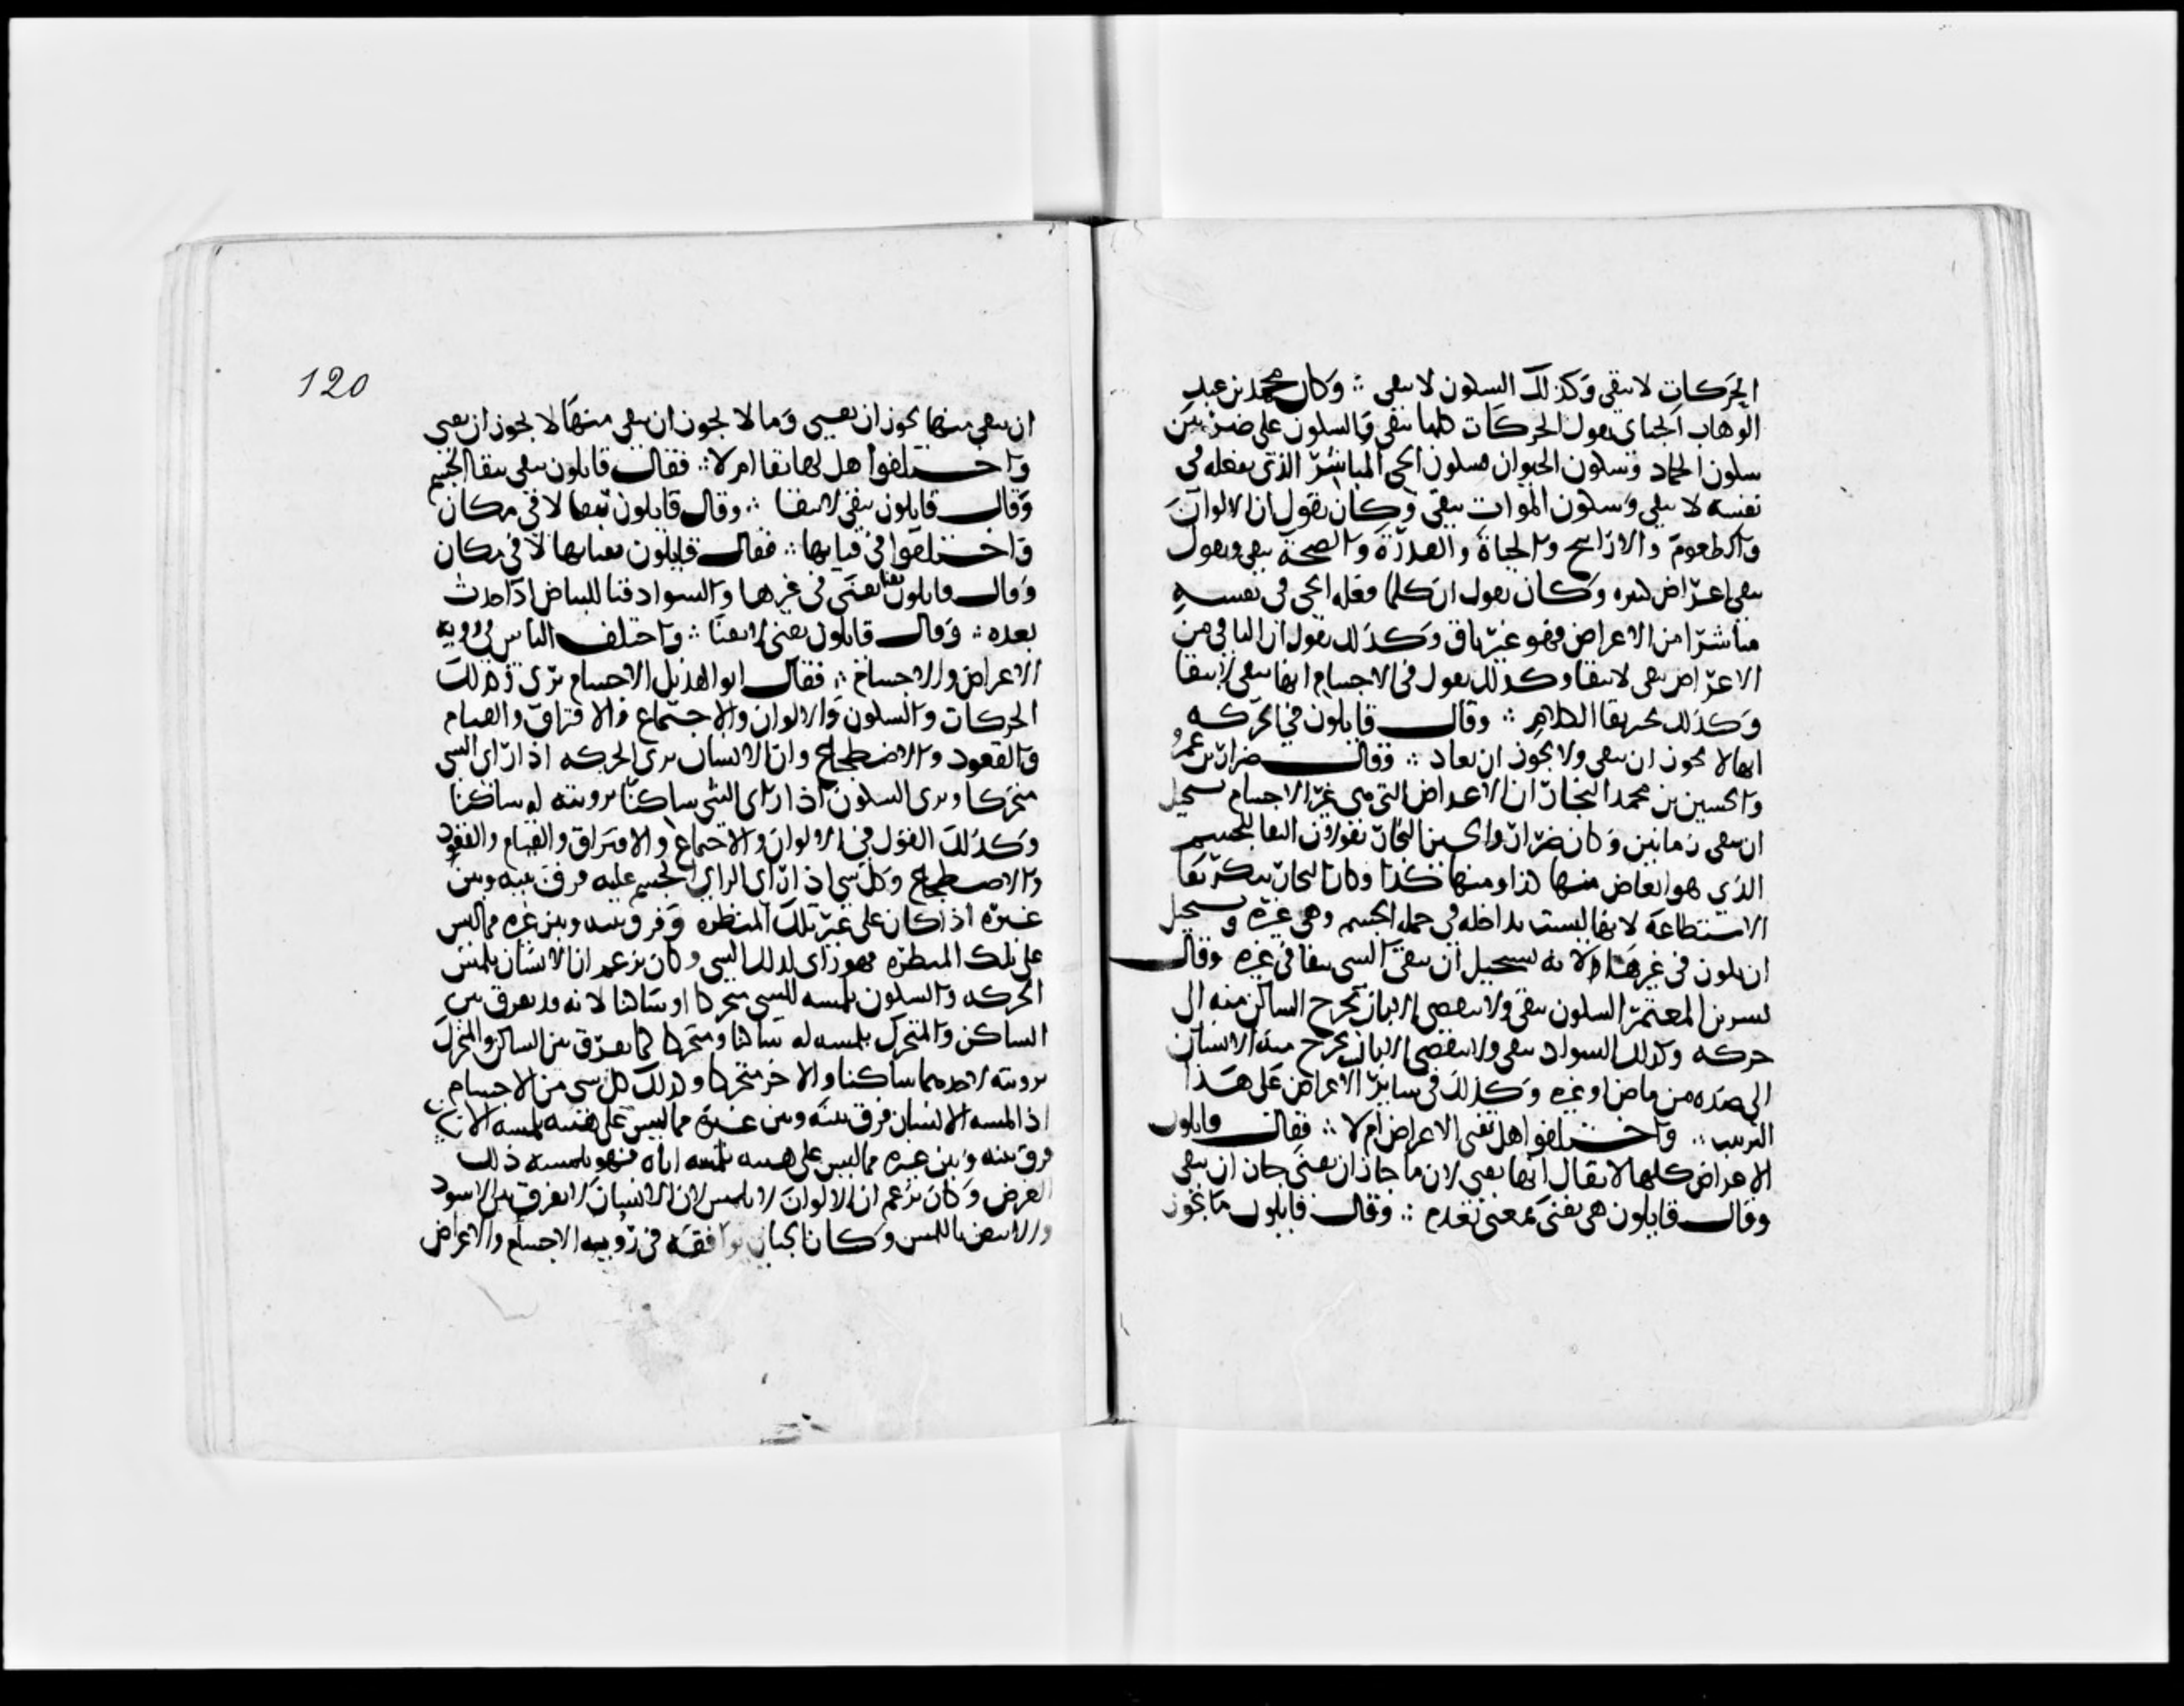 الحركات لا تبقى وكذلك السكون لا يبقى ∴ وكان محمد بن عبد
الوهاب الجباى يقول الحركات كلها لا تبقى والسكون على ضربين
سكون الجماد وسكون الحيوان فسكون الحى المباشر الذى يفعله فى
نفسه لا يبقى وسكون الموات يبقى وكان يقول ان الالوان
والطعوم والارايح والحياة والقدرة والصحة تبقى ويقول
ببقى اعراض كثيره وكان يقول ان كلما فعله الحى فى نفسه
مباشرا من الاعراض فهو غير باق وكذلك يقول ان الباقى من
الاعراض يبقى لا ببقا وكذلك يقول فى الاجسام انها تبقى لا ببقا
وكذلك يحيز بقا الكلام ∴ وقال قايلون فى الحركه
انها لا يجوز ان تبقى ولا يجوز ان تعاد ∴ وقال ضرار بن عمرو
والحسين بن محمد النجار ان الاعراض التى هى غير الاجسام يستحيل
ان تبقى زمانين وكان ضرار والحسين النجار يقولان البقا للجسم
الذى هو ابعاض منها كذا ومنها كذا وكان النجار ينكر بقا
الاستطاعة لانها ليست بداخله فى جمله الجسم وهى غيره ويستحيل
ان يكون فى غيرها لانه يستحيل ان يبقى الشى ببقا فى غيره وقال
بشر بن المعتمر السكون يبقى ولا ينقضى الا بان يخرج الساكن منه الى
حركه وكذلك السواد يبقى ولا ينقضى الا بان يخرج منه الانسان
الى ضده من بياض او غيره وكذلك فى ساير الاعراض على هذا
الترتيب ∴ واختلفوا هل تفنى الاعراض ام لا ∴ فقال قايلون
الاعراض كلها لا يقال انها تفنى لان ما جاز ان يفنى جاز ان يبقى
وقال قايلون هى تفنى بمعنى تعدم ∴ وقال قايلون ما يجوز
120
ان يبقى منها يجوز ان يفنى وما لا يجوز ان يبقى منها لا يجوز ان يفنى
واختلفوا هل لها بقا ام لا ∴ فقال قايلون تبقى ببقا الجسم
وقال قايلون تبقى لا ببقا ∴ وقال قايلون بقاها لا فى مكان
واختلفوا فى فنايها ∴ فقال قايلون فناها لا فى مكان
وقال قايلون تفنى فى غيرها والسواد فنا للبياض اذا حدث
بعده ∴ وقال قايلون تفنى لا بفنا ∴ واختلف الناس فى رويه
الاعراض والاجسام ∴ فقال ابو الهذيل الاجسام ترى وكذلك
الحركات والسكون والالوان والاجتماع والافتراق والقيام
والقعود والاضطجاع وان الانسان يرى الحركه اذا راى الشى
متحركا ويرى السكون اذا راى الشى ساكنا برويته له ساكنا
وكذلك القول فى الالوان والاجتماع والافتراق والقيام والقعود
والاضطجاع وكل شى اذا راى الراى الجسم عليه فرق بينه وبين
غيره اذا كان على غير تلك المنظره وفرق بينه وبين غيره مما ليس
على تلك المنظره فهو راى لذلك الشى وكان يزعم ان الانسان يلمس
الحركه والسكون بلمسه للشى متحركا او ساكنا لانه قد يفرق بين
الساكن والمتحرك بلمسه له ساكنا ومتحركا كما يفرق بين الساكن والمتحرك
برويته لاحدهما ساكنا والاخر متحركا وكذلك كل شى من الاجسام
اذا لمسه الانسان فرق بينه وبين غيره مما ليس على هيئته بلمسه
فرق بينه وبين غيره مما ليس على هيئته بلمسه اياه فهو يلمس ذلك
العرض وكان يزعم ان الالوان لا تلمس لان الانسان لا يفرق بين الاسود
والابيض باللمس وكان الجباى يوافقه فى رويه الاجسام والاعراض